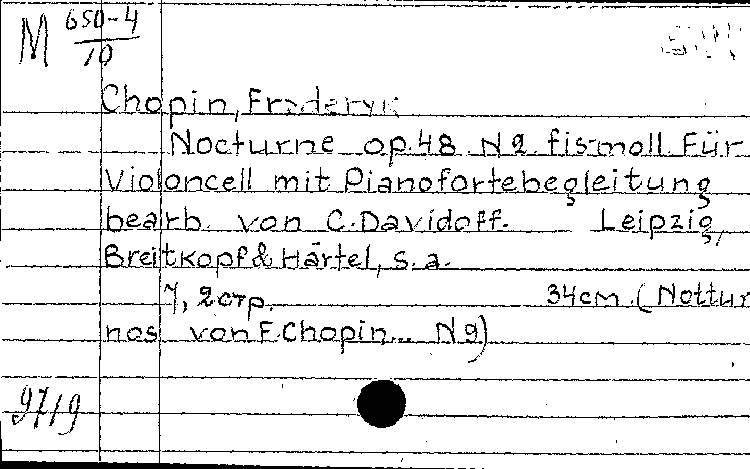 M 650-4/10
Chopin, Fryderyk
Nocturne op.48 N2 fis-moll. Für
Violoncell mit Pianofortebegleitung
bearb. von C.Davidoff. Leipzig,
Breitkopf & Härtel, s.a.
7, 2 стр. 34cm. (Nottur
nos von F.Chopin... N9)
9719